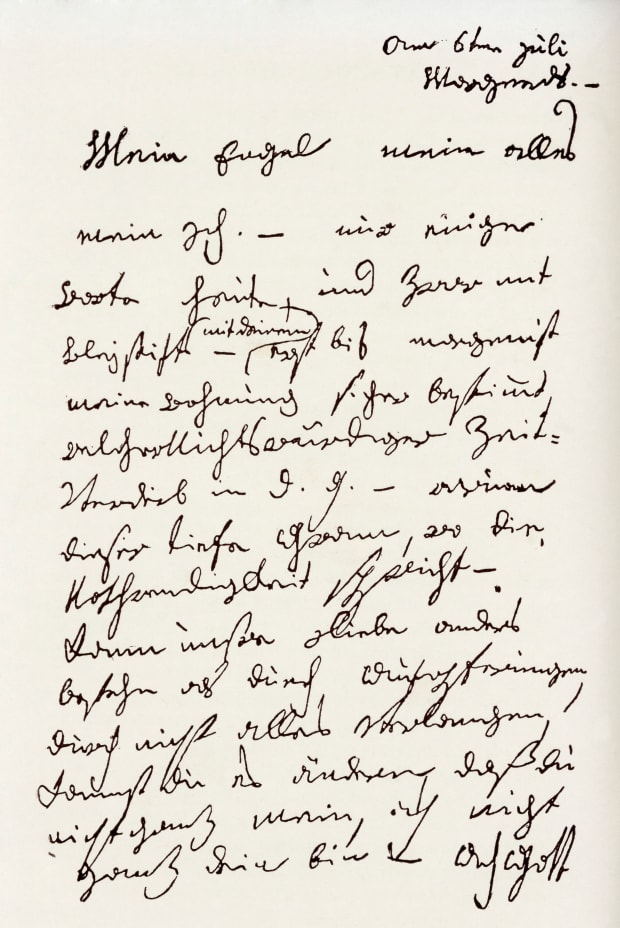 am 6ten Juli
Morgends. –
Mein Engel mein alles
mein Ich. – nur einige
worte heute, und zwar mit
Bleystift – mit deinem erst bis morgen ist
meine wohnung sicher bestimmt,
welcher Nichtswürdiger Zeit=
Verderb in d. g. – warum
dieser tiefe Gram, wo die
Nothwendigkeit spricht –
Kann unsre Liebe anders
bestehn als durch Aufopferungen,
durch nicht alles verlangen,
kannst du es ändern, daß du
nicht ganz mein, ich nicht
ganz dein bin – Ach Gott